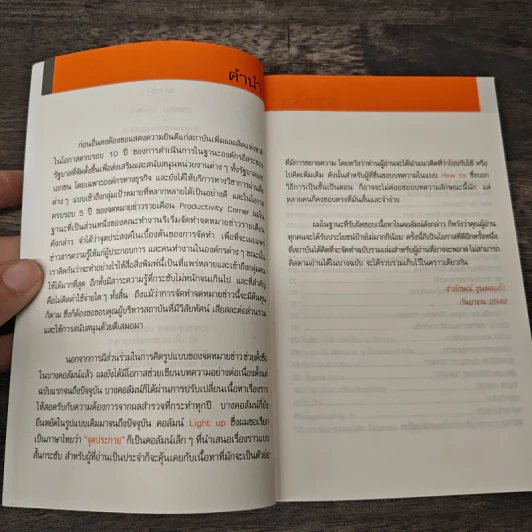 คำนำ
ก่อนอื่นคงต้องขอแสดงความยินดีแก่สถาบันเพิ่มผลผลิตแห่งชาติ
ในโอกาสครบรอบ 10 ปี ของการดำเนินการในฐานะองค์กรอิสระของ
รัฐบาลที่จัดตั้งขึ้นเพื่อส่งเสริมและสนับสนุนหน่วยงานต่าง ๆ ทั้งรัฐบาลและ
เอกชน โดยเฉพาะองค์กรทางธุรกิจ และยังได้ให้บริการทางวิชาการผ่านสื่อ
ต่าง ๆ แบบเข้าถึงกลุ่มเป้าหมายที่หลากหลายได้เป็นอย่างดี และในโอกาส
ครบรอบ 5 ปี ของจดหมายข่าวรายเดือน Productivity Corner ผมใน
ฐานะที่เป็นส่วนหนึ่งของคณะทำงานริเริ่มจัดทำจดหมายข่าวรายเดือน
ดังกล่าว จำได้ว่าจุดประสงค์ในเบื้องต้นของการจัดทำ เพื่อที่จะเผยแพร่
ข่าวสารความรู้ให้แก่ผู้ประกอบการ และคนทำงานในองค์กรต่าง ๆ ขณะนั้น
เราคิดกันว่าจะทำอย่างไรให้สื่อสิ่งพิมพ์นี้เป็นที่แพร่หลายและเข้าถึงกลุ่มคน
ให้ได้มากที่สุด อีกทั้งมีสาระความรู้ที่กระชับไม่หนักจนเกินไป และที่สำคัญ
คือไม่คิดค่าใช้จ่ายใด ๆ ทั้งสิ้น ถึงแม้ว่าการจัดทำจดหมายข่าวนี้จะมีต้นทุน
ก็ตาม ซึ่งก็ต้องขอขอบคุณผู้บริหารสถาบันที่มีวิสัยทัศน์ เสียสละต่อส่วนรวม
และให้การสนับสนุนด้วยดีเสมอมา
นอกจากการมีส่วนร่วมในการคิดรูปแบบของจดหมายข่าว ช่วยตั้งชื่อ
ในบางคอลัมน์แล้ว ผมยังได้มีโอกาสช่วยเขียนบทความอย่างต่อเนื่องตั้งแต่
ฉบับแรกจนถึงปัจจุบัน บางคอลัมน์ก็ได้ผ่านการปรับเปลี่ยนเนื้อหาเรื่องราว
ให้สอดรับกับความต้องการจากผลสำรวจที่กระทำทุกปี บางคอลัมน์ก็ยัง
ยืนหยัดในรูปแบบเดิมมาจนถึงปัจจุบัน คอลัมน์ Light up ซึ่งผมขอเรียก
เป็นภาษาไทยว่า "จุดประกาย" ก็เป็นคอลัมน์เล็ก ๆ ที่นำเสนอเรื่องราวแบบ
สั้นกระชับ สำหรับผู้ที่อ่านเป็นประจำก็จะคุ้นเคยกับเนื้อหาที่มักจะเป็นตัวอย่าง
ที่มีการขยายความ โดยหวังว่าท่านผู้อ่านจะได้นำแนวคิดที่ว่าไปปรับใช้ หรือ
ไปคิดเพิ่มเติม ดังนั้นสำหรับผู้ที่ชอบบทความในแบบ How to ซึ่งบอก
วิธีการเป็นขั้นเป็นตอน ก็อาจจะไม่ค่อยชอบบทความลักษณะนี้นัก แต่
หลายคนก็คงชอบตรงที่มันสั้นและจำง่าย
ผมในฐานะที่รับผิดชอบเนื้อหาในคอลัมน์ดังกล่าว ก็หวังว่าคุณผู้อ่าน
ทุกคนจะได้รับประโยชน์บ้างไม่มากก็น้อย ครั้งนี้ก็เป็นโอกาสที่ดีอีกครั้งหนึ่ง
ที่สถาบันได้คิดที่จะจัดทำฉบับรวมเล่มสำหรับผู้อ่านที่อาจจะพลาดไม่สามารถ
ติดตามอ่านได้ในบางฉบับ จะได้รวบรวมเก็บไว้ในคราวเดียวกัน
กันยายน 2548